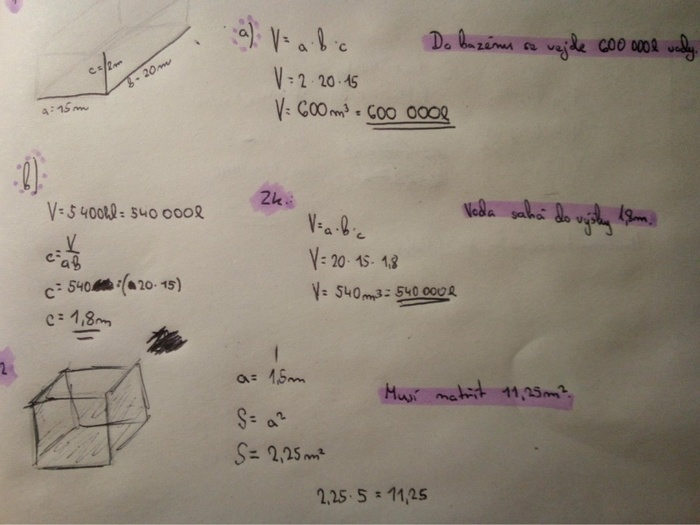 c=2m
b=20m
a=15m
a)
V=a·b·c
V=2·20·15
V=600m³=600 000l
Do bazénu se vejde 600 000l vody.
b)
V=5400hl=540 000l
c=V/a·b
c=540:(20·15)
c=1,8m
Zk.:
V=a·b·c
V=20·15·1,8
V=540m³=540 000l
Voda sahá do výšky 1,8m.
2
a=1,5m
S=a²
S=2,25m²
Musí natřít 11,25m².
2,25·5=11,25